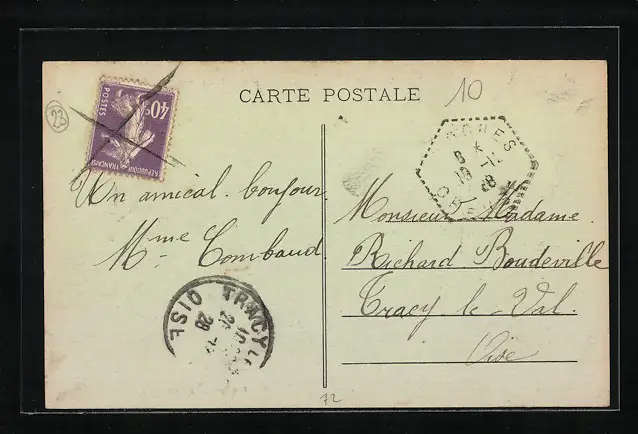 CARTE POSTALE
10
23
40c
POSTES
REPUBLIQUE FRANÇAISE
Un amical bonjour
Mme Combaud
Monsieur Madame
Richard Boudeville
Tracy le Val.
Oise
TRACY L
OISE
28
72